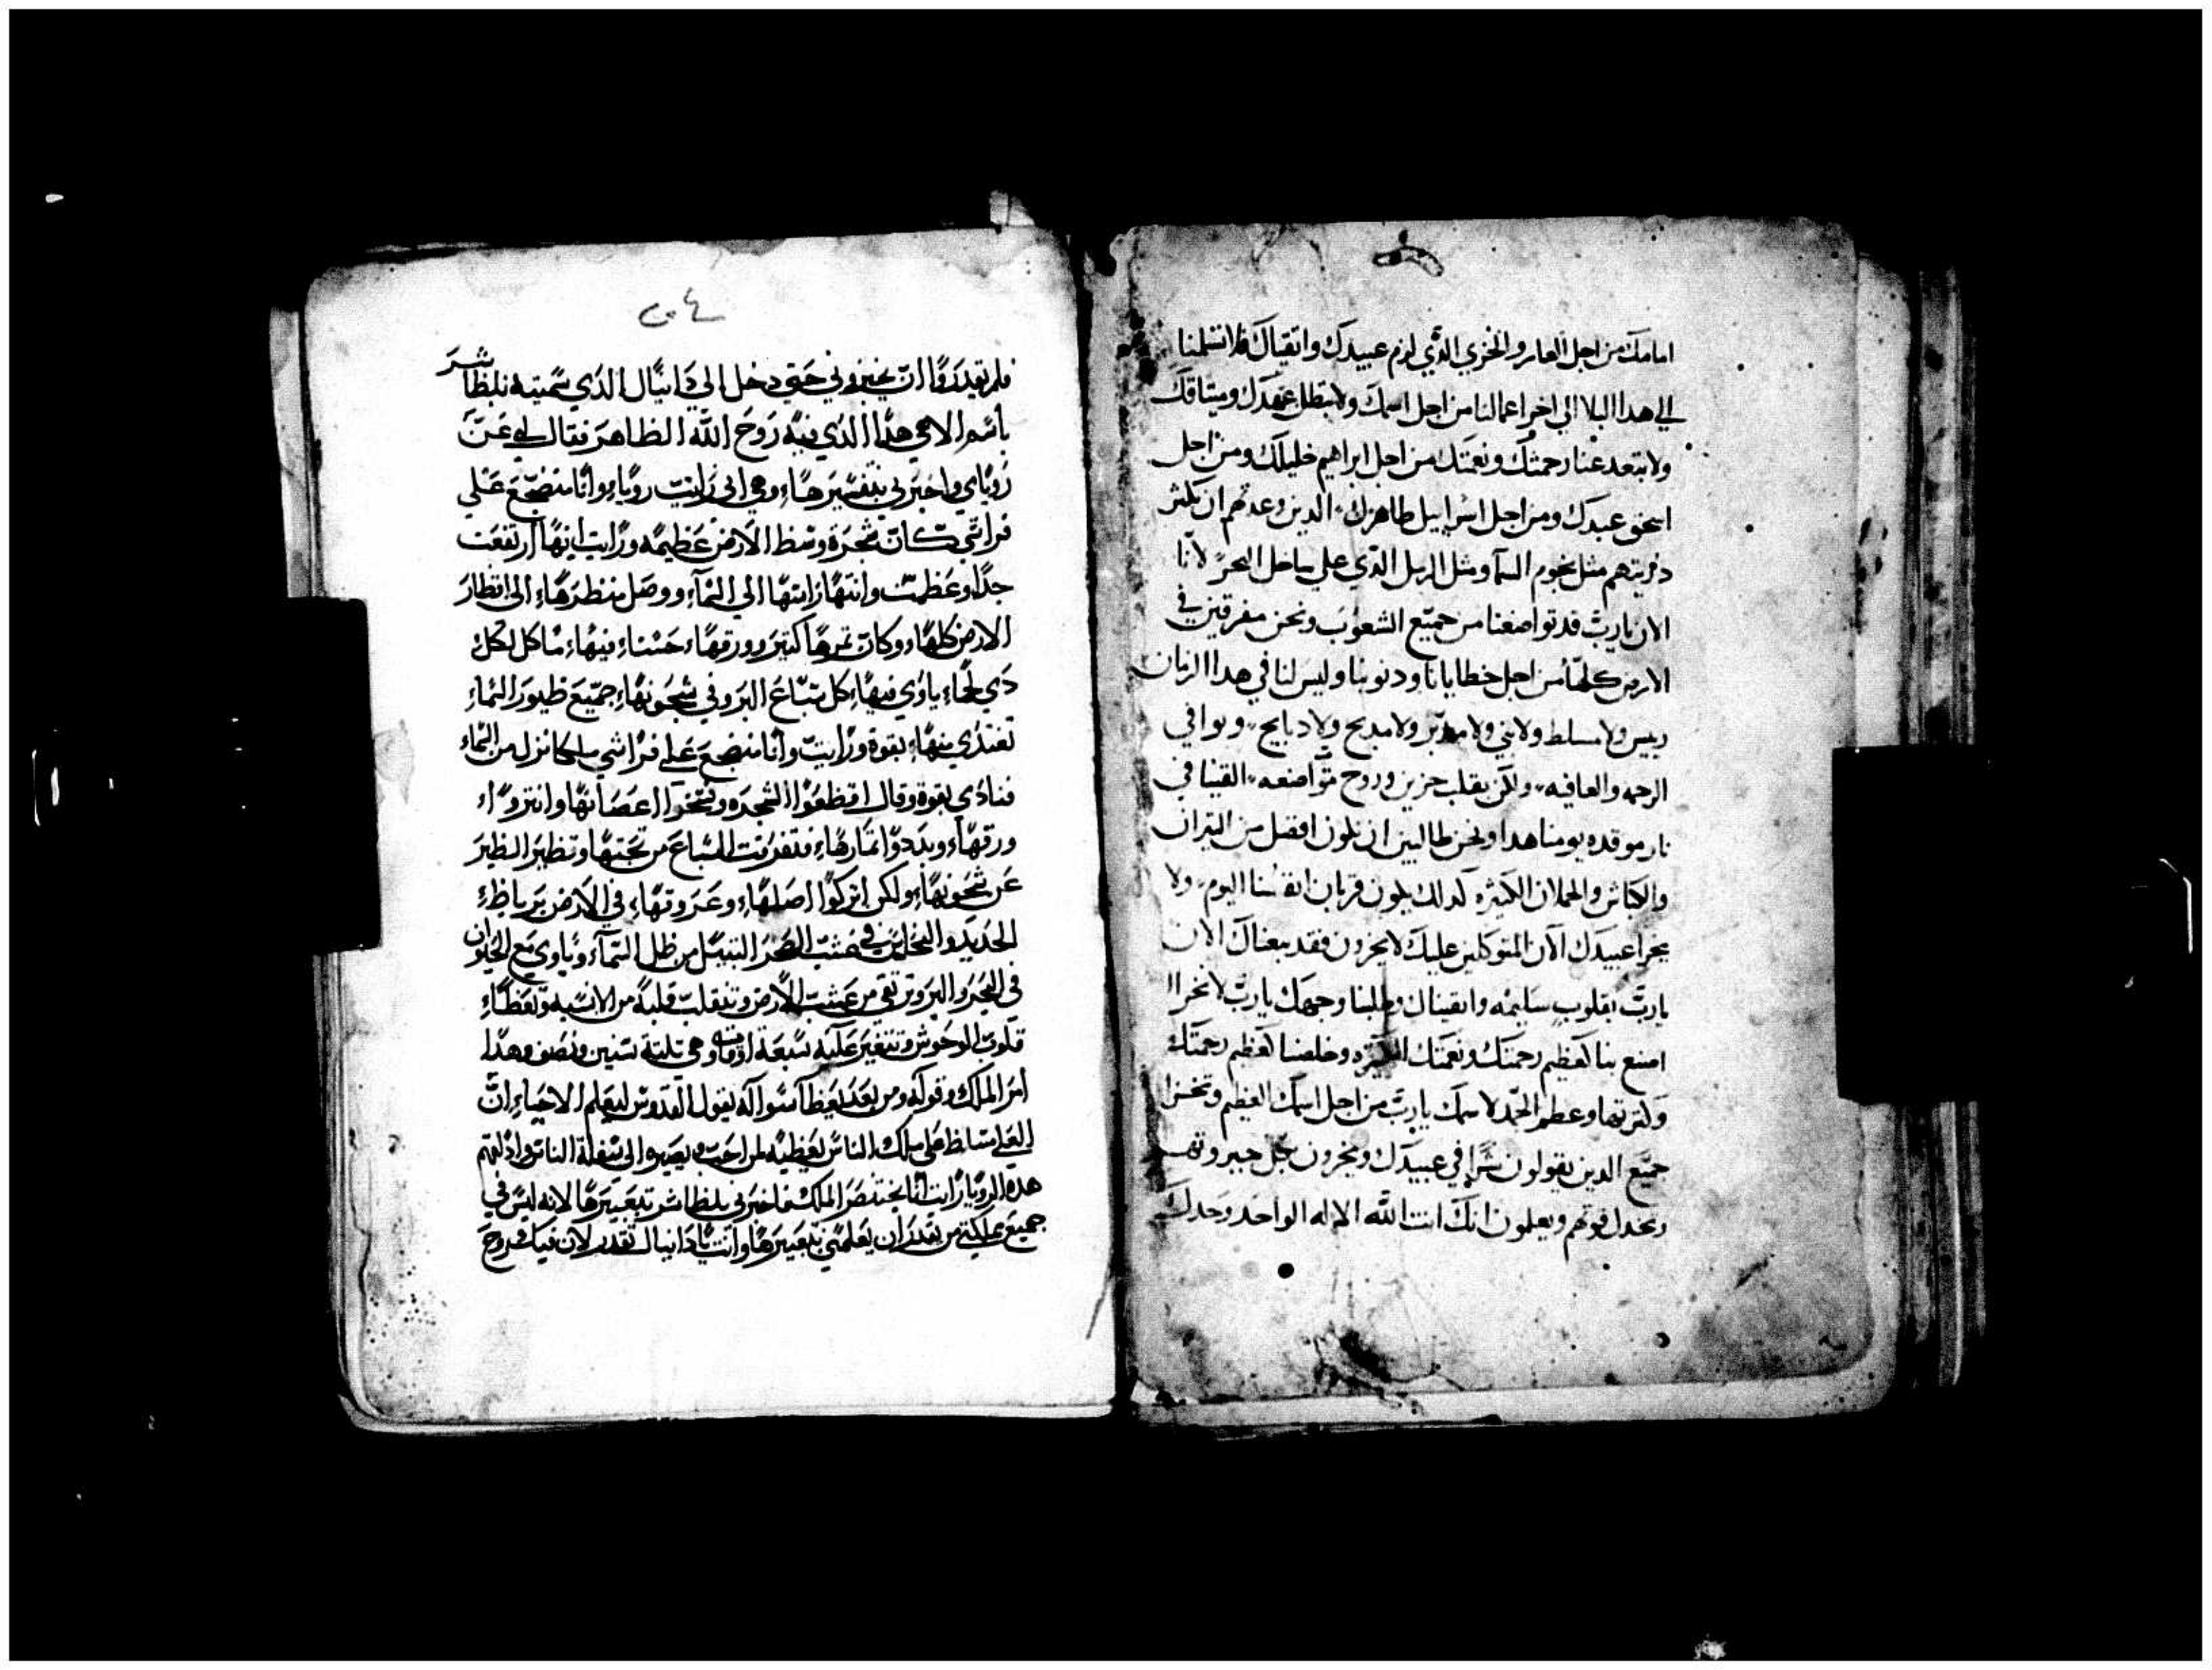 امامك من اجل العار والخزي الذي لزم عبيدك واتقياك فلا تسلمنا
الي هدا البلا الي اخر اعمالنا من اجل اسمك ولا تبطل عهدك وميثاقك
ولا تبعد عنا رحمتك ونعمتك من اجل ابراهيم خليلك ومن اجل
اسحق عبدك ومن اجل اسراييل طاهرك الدين وعدتهم ان تكثر
دريتهم مثل نجوم السما ومثل الرمل الذي علي ساحل البحر لانا
الان يارب قد تواضعنا من جميع الشعوب ونحن مفرقين في
الارض كلها من اجل خطايانا ودنوبنا وليس لنا في هدا الزمان
رييس ولا مسلط ولا نبي ولا مدبر ولا مدبح ولا دبايح ونوافي
الرحمه والعافيه ولكن بقلب حزين وروح متواضعه القينا في
نار موقده يومنا هدا ونحن طالبين ان نكون افضل من التيران
والكباش والحملان الكثيره كدلك يكون قربان انفسنا اليوم ولا
يخزا عبيدك الان المتوكلين عليك لا يخزون فقد تبعناك الان
يارب بقلوب سليمه واتقيناك وطلبنا وجهك يارب لا نخزا
اصنع بنا كعظيم رحمتك ونعمتك الكثيره وخلصنا كعظم رحمتك
وكثرتها وعظم الحمد لاسمك يارب من اجل اسمك العظيم وتخزا
جميع الدين يقولون شرا في عبيدك ويخزون بكل جبروتهم
وتخدل قوتهم ويعلمون انك انت الله الاله الواحد وحدك
فلم يقدروا ان يخبروني حتي دخل الي دانيال الدي سميته بلطاشر
باسم الاهي هدا الدي فيه روح الله الطاهر فقال لي عن
روياي واخبرني بتفسيرها وهي اني رايت رويا وانا منضجع علي
فراشي كان شجرة وسط الارض عظيمه ورايت انها ارتفعت
جدا وعظمت وانتها راسها الي السما ووصل منظرها الي اقطار
الارض كلها وكان تمرها كتير وورقها حسنا وفيها ماكل لكل
دي لحم ياوي فيها كل سباع البر وفي شجونها جميع طيور السما
تغتدي منها بقوة ورايت وانا منضجع علي فراشي ملكا نزل من السما
فنادي بقوة وقال اقطعوا الشجره اغصانها وانتروا
ورقها وبددوا تمارها فتفرقت السباع من تحتها وتطير الطير
عن شجونها ولكن اتركوا اصلها وعروقها في الارض برباط
الحديد والنحاس في عشب الصحرا من ظل السما وياوي مع الحيوان
في البر من عشب الارض وتنقلب قلبه من الانسيه وتعطا
قلوب الوحوش وتتغير عليه سبعة اوقات وهي تلتة سنين ونصف وهدا
امر الملك وقوله ومن بعد سواله يقول القدوس ليعلم الاحيا ان
العلي مسلط علي ملك الناس يعطيه لمن احب ويصيره الي سفلة الناس وادلتهم
هده الرويا رايت انا بختنصر الملك فاخبرني بلطاشر بتعبيرها لانه ليس في
جميع مملكتي من يقدر ان يعلمني بتعبيرها وانت يا دانيال تقدر لان فيك روح